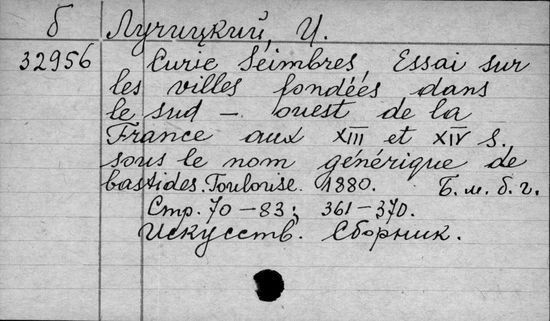 б Лучицкий, И.
32956 Curie Séimbres, Essai sur
les villes fondées dans
le sud – ouest de la
France aux XIII et XIV s.
sous le nom générique de
bastides. Toulouse. 1880. Б. м. б. г.
Стр. 70 – 83; 361 – 370.
Искусств. Сборник.